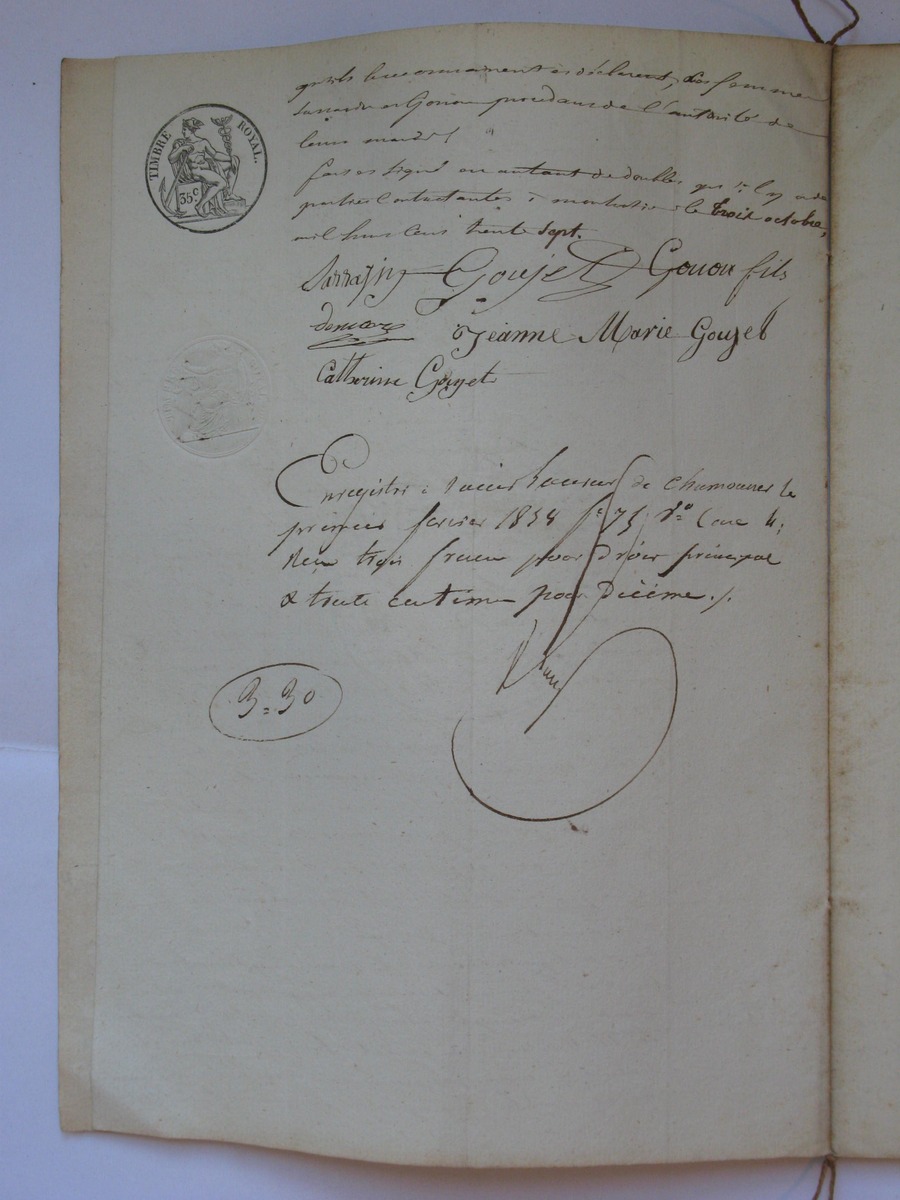 TIMBRE ROYAL.
35c
les femmes
Gonon procédant de l'autorité de
leurs maris
fait et signé en autant de doubles qu'il y a de
parties contractantes à le trois octobre,
mil huit cent trente sept.
Sarrazin Goujet Gonon fils
Jeanne Marie Goujet
Catherine Goujet
Enregistré à de Chamounet le
premier février 1838 f° 75 v° case 4;
Reçu trois francs pour droit principal
& trente centimes pour décime ./.
3=30